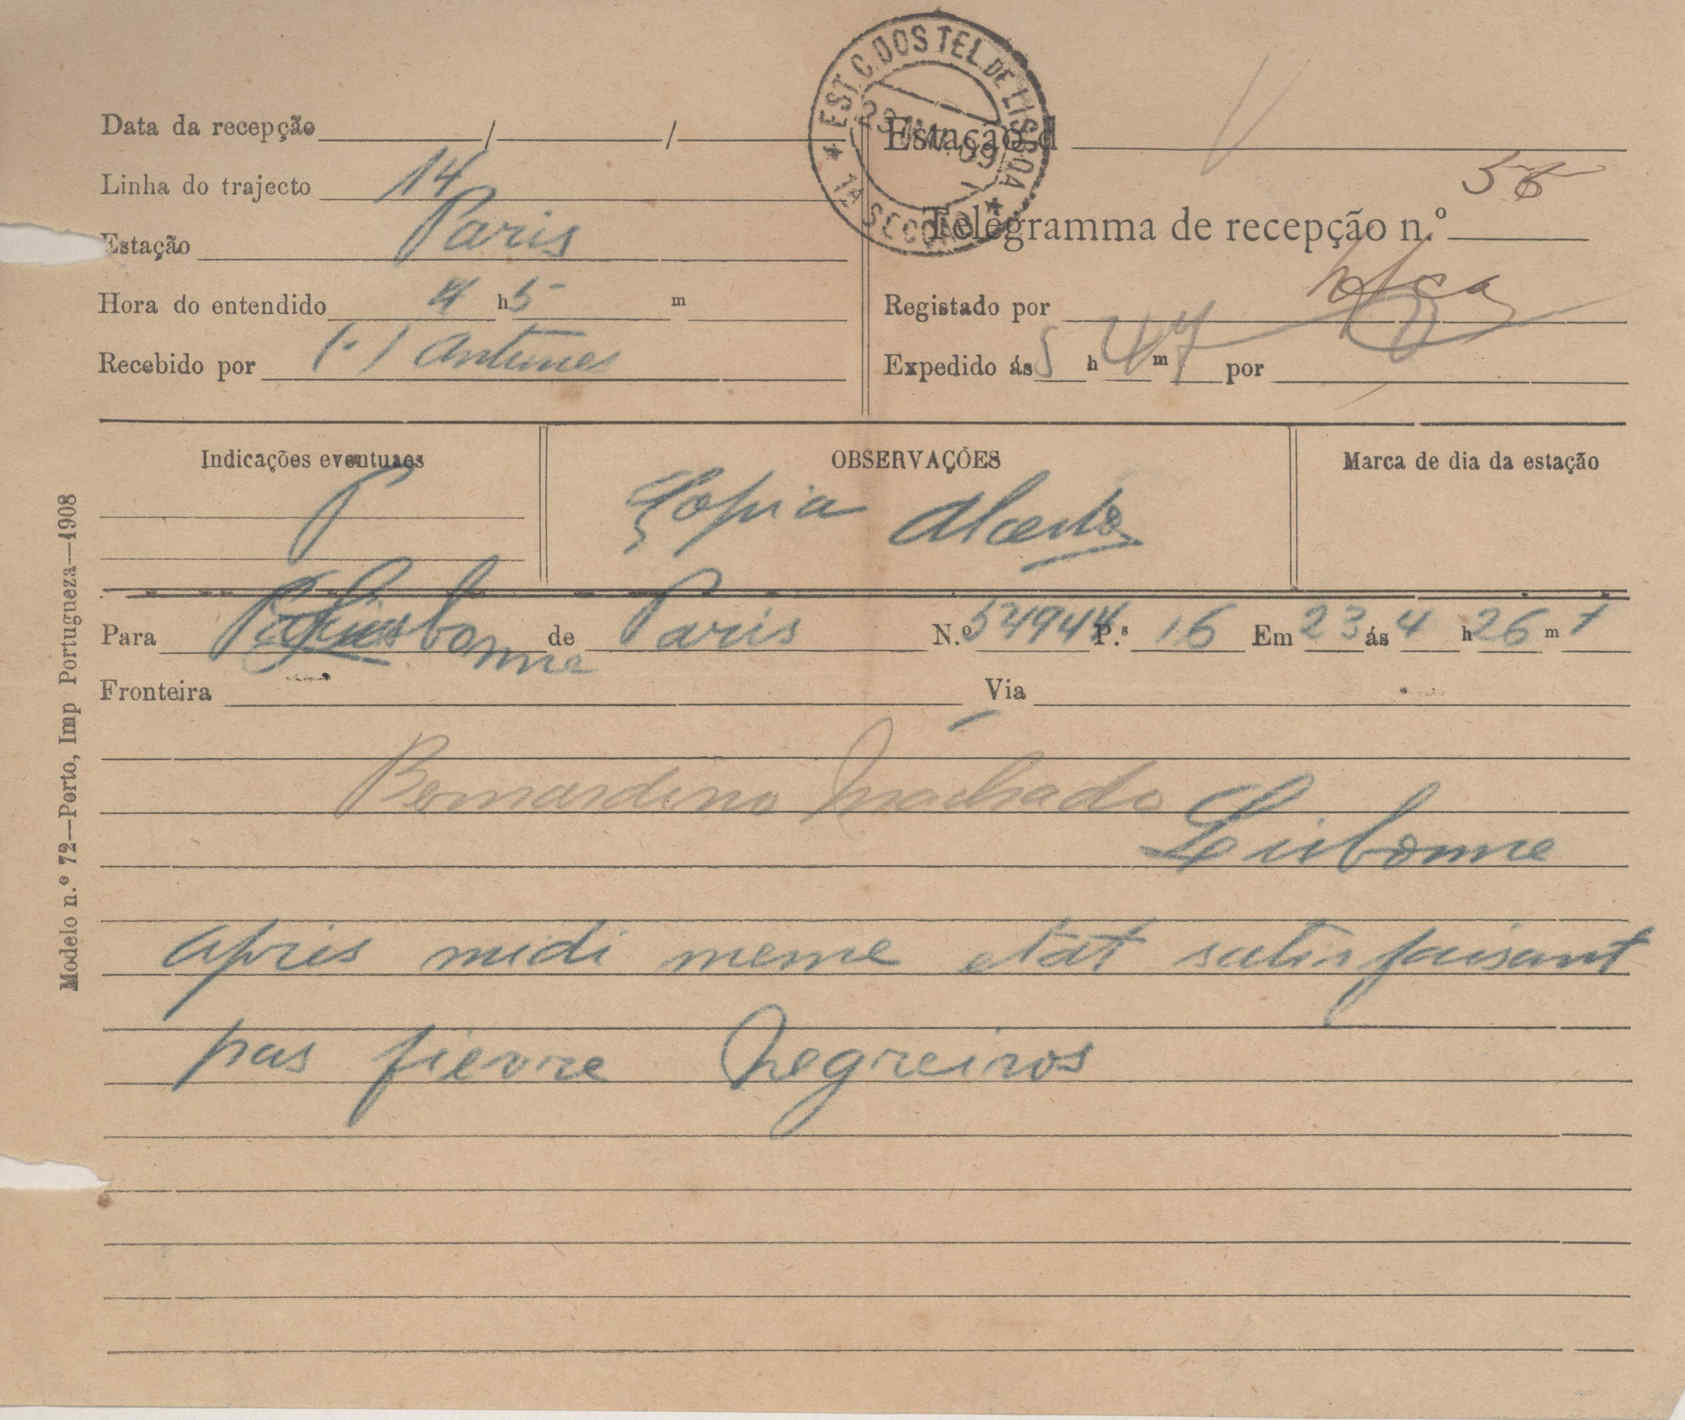 EST. C. DOS TEL. DE LISBOA
1ª SECÇÃO
Data da recepção / /
Linha do trajecto 14
Estação Paris
Hora do entendido 4 h 5 m
Recebido por (-) Antunes
Estação d
Telegramma de recepção n.º
Registado por
Expedido ás 5 h 47 m por
Indicações eventuaes
OBSERVAÇÕES
Marca de dia da estação
P
Copia
Para Lisbonne de Paris N.º 54944 P.s 16 Em 23 ás 4 h 26 m t
Fronteira Via
Bernardino Machado
Lisbonne
apres midi meme etat satisfaisant
pas fievre Negreiros
Modelo n.º 72—Porto, Imp Portugueza—1908